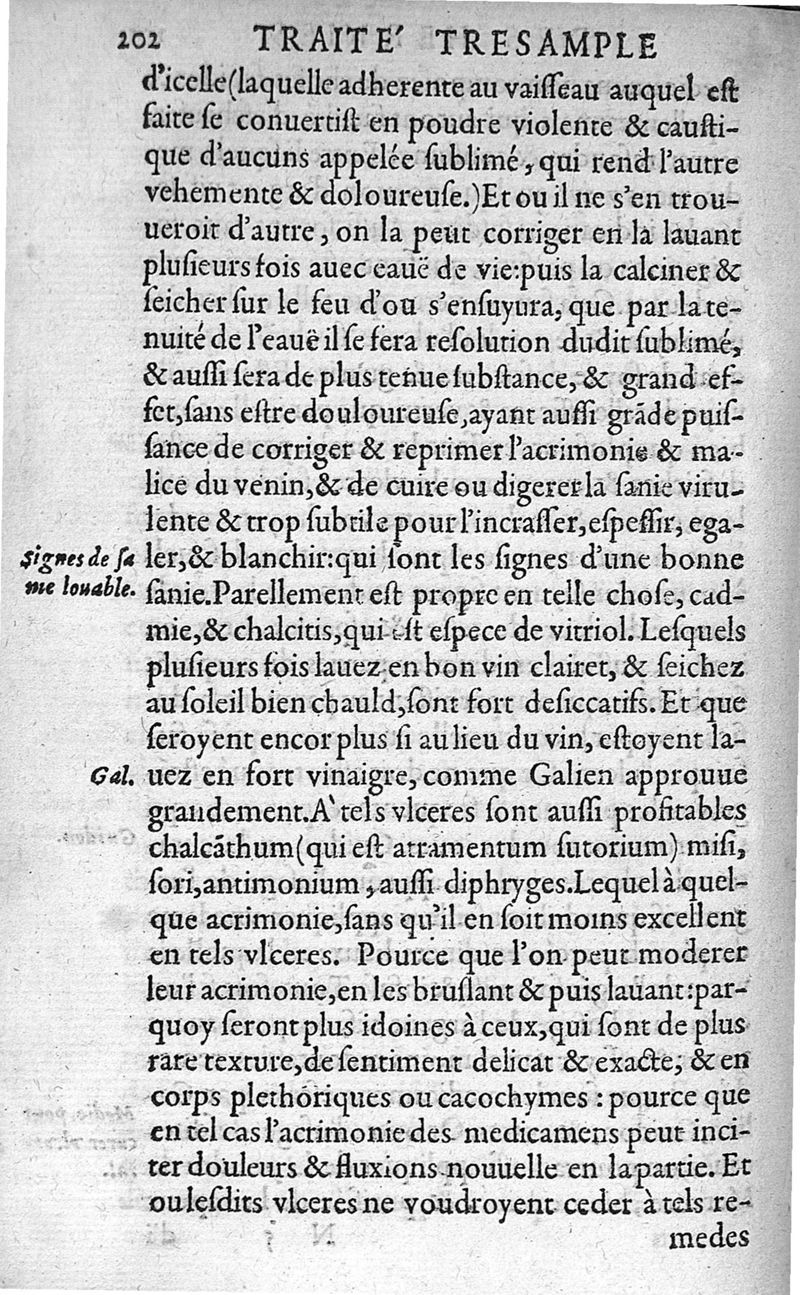 202 TRAITE' TRESAMPLE
d'icelle(laquelle adherente au vaiſſeau auquel eſt
faite ſe conuertiſt en poudre violente & cauſti-
que d'aucuns appelée ſublimé, qui rend l'autre
vehemente & doloureuſe.)Et ou il ne s'en trou-
ueroit d'autre, on la peut corriger en la lauant
pluſieurs fois auec eauë de vie:puis la calciner &
ſeicher ſur le feu d'ou s'enſuyura, que par la te-
nuité de l'eauë il ſe fera reſolution dudit ſublimé,
& auſſi ſera de plus tenue ſubſtance, & grand ef-
fet, ſans eſtre douloureuſe, ayant auſſi grāde puiſ-
ſance de corriger & reprimer l'acrimonie & ma-
lice du venin, & de cuire ou digerer la ſanie viru-
lente & trop ſubtile pour l'incraſſer, eſpeſſir, ega-
Signes de ſa
ler, & blanchir:qui ſont les ſignes d'une bonne
nie louable.
ſanie.Parellement eſt propre en telle choſe, cad-
mie, & chalcitis, qui eſt eſpece de vitriol. Leſquels
pluſieurs fois lauez en bon vin clairet, & ſeichez
au ſoleil bien chauld, ſont fort deſiccatifs. Et que
ſeroyent encor plus ſi au lieu du vin, eſtoyent la-
Gal.
uez en fort vinaigre, comme Galien approuue
grandement.A` tels vlceres ſont auſſi profitables
chalcāthum(qui eſt atramentum ſutorium) miſi,
ſori, antimonium, auſſi diphryges.Lequel à quel-
que acrimonie, ſans qu'il en ſoit moins excellent
en tels vlceres. Pource que l'on peut moderer
leur acrimonie, en les bruſlant & puis lauant:par-
quoy ſeront plus idoines à ceux, qui ſont de plus
rare texture, de ſentiment delicat & exacte; & en
corps plethoriques ou cacochymes : pource que
en tel cas l'acrimonie des medicamens peut inci-
ter douleurs & fluxions nouuelle en la partie. Et
ou leſdits vlceres ne voudroyent ceder à tels re-
medes